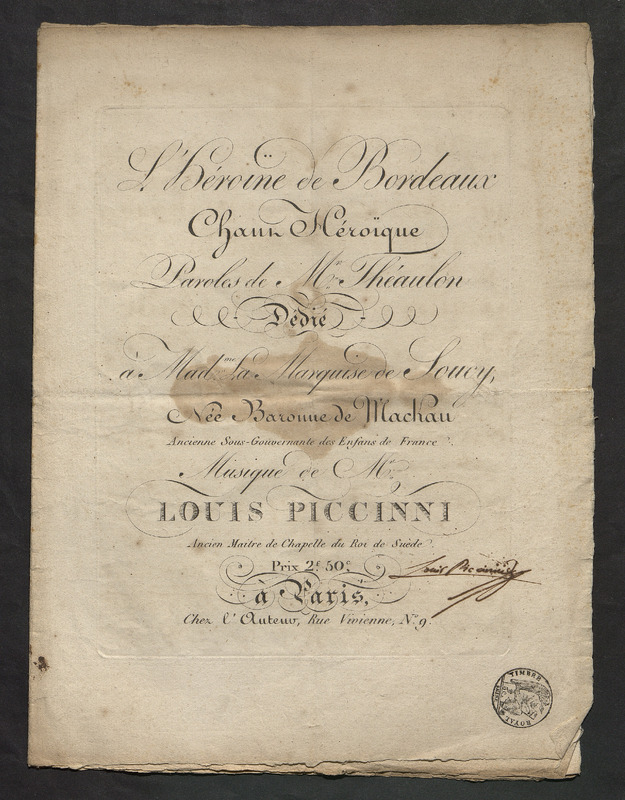 L'Héroïne de Bordeaux
Chant Héroïque
Paroles de Mr. Théaulon
Dédié
à Madme. la Marquise de Soucy,
Née Baronne de Machau
Ancienne Sous-Gouvernante des Enfans de France.
Musique de Mr.
LOUIS PICCINNI
Ancien Maitre de Chapelle du Roi de Suède.
Prix 2f. 50c.
Louis Piccinni
à Paris,
Chez l'Auteur, Rue Vivienne, No. 9.
TIMBRE
ROYAL